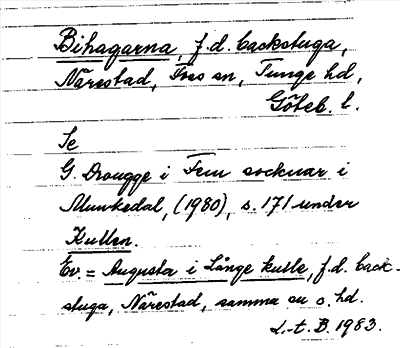 Bihagarna, f.d. backstuga,
Närestad, Foss sn, Tunge hd,
Göteb. l.
Se
G. Drougge i Fem socknar i
Munkedal, (1980), s. 171 under
Kullen.
Ev. = Augusta i Långe kulle, f.d. back-
stuga, Närestad, samma sn o. hd.
L-t. B. 1983.